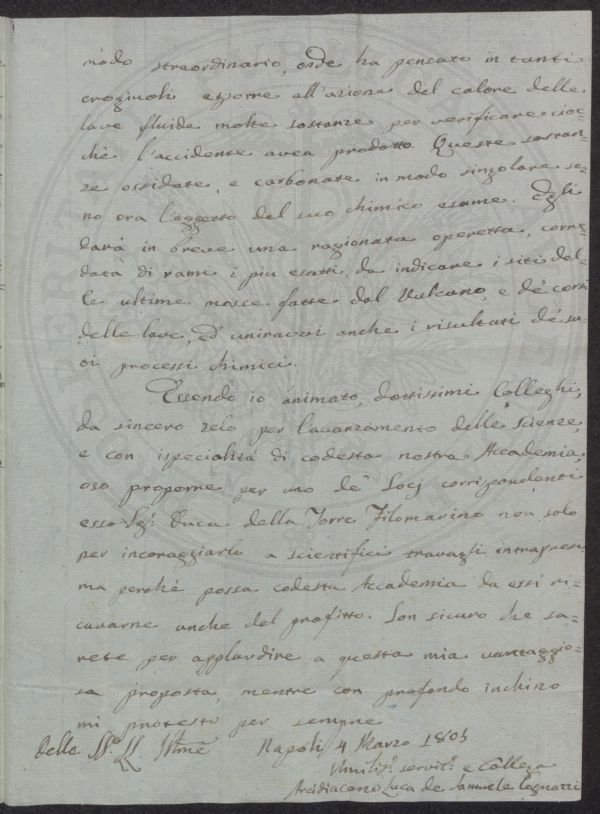 modo straordinario, onde ha pensato in tanti
crogiuoli esporre all'azione del calore delle
lave fluide molte sostanze per verificare cioc-
chè l'accidente avea prodotto. Queste sostan-
ze ossidate, e carbonate in modo singolare so-
no ora l'oggetto del suo chimico esame. Egli
darà in breve una ragionata operetta, corre-
data di rami i più esatti, da indicare i siti del-
le ultime mosse fatte dal Vulcano, e de' corsi
delle lave, ed uniravvi anche i risultati de' su-
oi processi chimici.
Essendo io animato, dottissimi Colleghi,
da sincero zelo per l'avanzamento delle scienze,
e con ispecialità di codesta nostra Accademia,
oso proporne per uno de' Socj corrispondenti
esso Sigr. Duca della Torre Filomarino non solo
per incoraggiarlo a scientifici travagli intrapresi,
ma perchè possa codesta Accademia da essi ri-
cavarne anche del profitto. Son sicuro che sa-
rete per applaudire a questa mia vantaggio-
sa proposta, mentre con profondo inchino
mi protesto per sempre
Delle SS.e LL. Illme Napoli 4 Marzo 1805
Umilis.o servit.e e Collega
Arcidiacono Luca de Samuele Cagnazzi